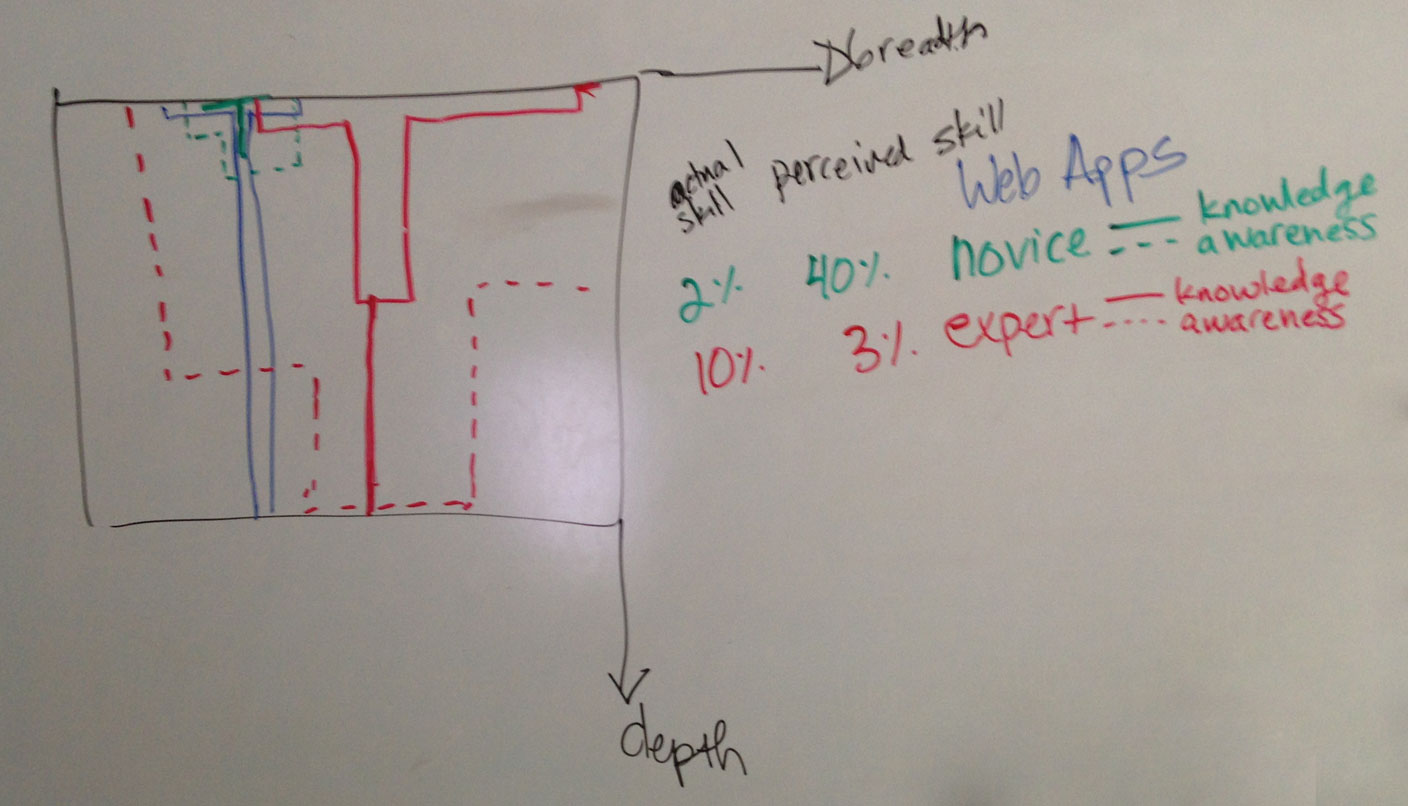 breadth
actual
skill
perceived skill
Web Apps
2% 40% novice knowledge
awareness
10% 3% expert knowledge
awareness
depth